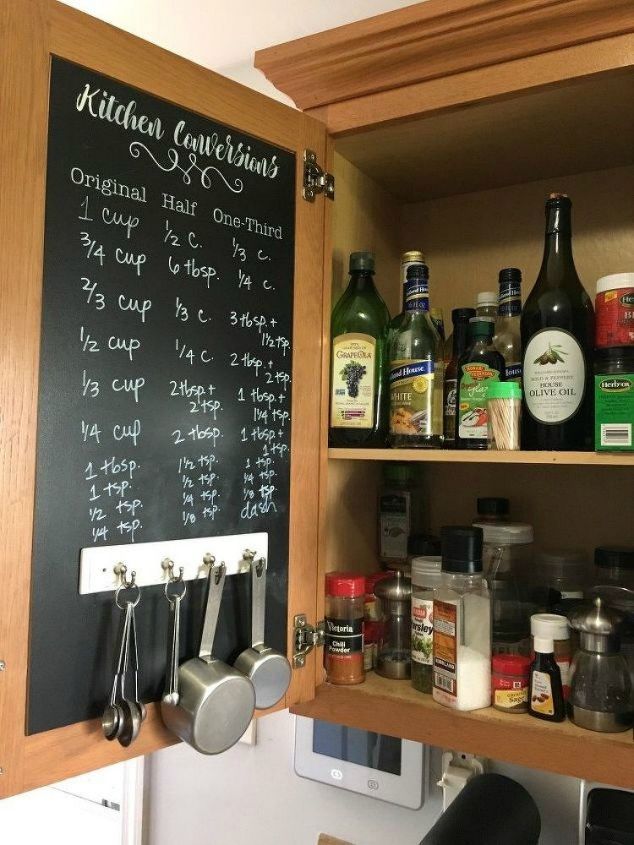 Kitchen Conversions
Original Half One-Third
1 cup ½ c. ⅓ c.
¾ cup 6 tbsp. ¼ c.
⅔ cup ⅓ c. 3 tbsp. + 1½ tsp.
½ cup ¼ c. 2 tbsp. + 2 tsp.
⅓ cup 2 tbsp. + 2 tsp. 1 tbsp. + 1¼ tsp.
¼ cup 2 tbsp. 1 tbsp. + 1 tsp.
1 tbsp. 1½ tsp. 1 tsp.
1 tsp. ½ tsp. ¼ tsp.
½ tsp. ¼ tsp. ⅛ tsp.
¼ tsp. ⅛ tsp. dash
GRAPEOLA
House
WHITE
HOUSE
OLIVE OIL
Herbox
Victoria
Chili
Powder
KIRKLAND